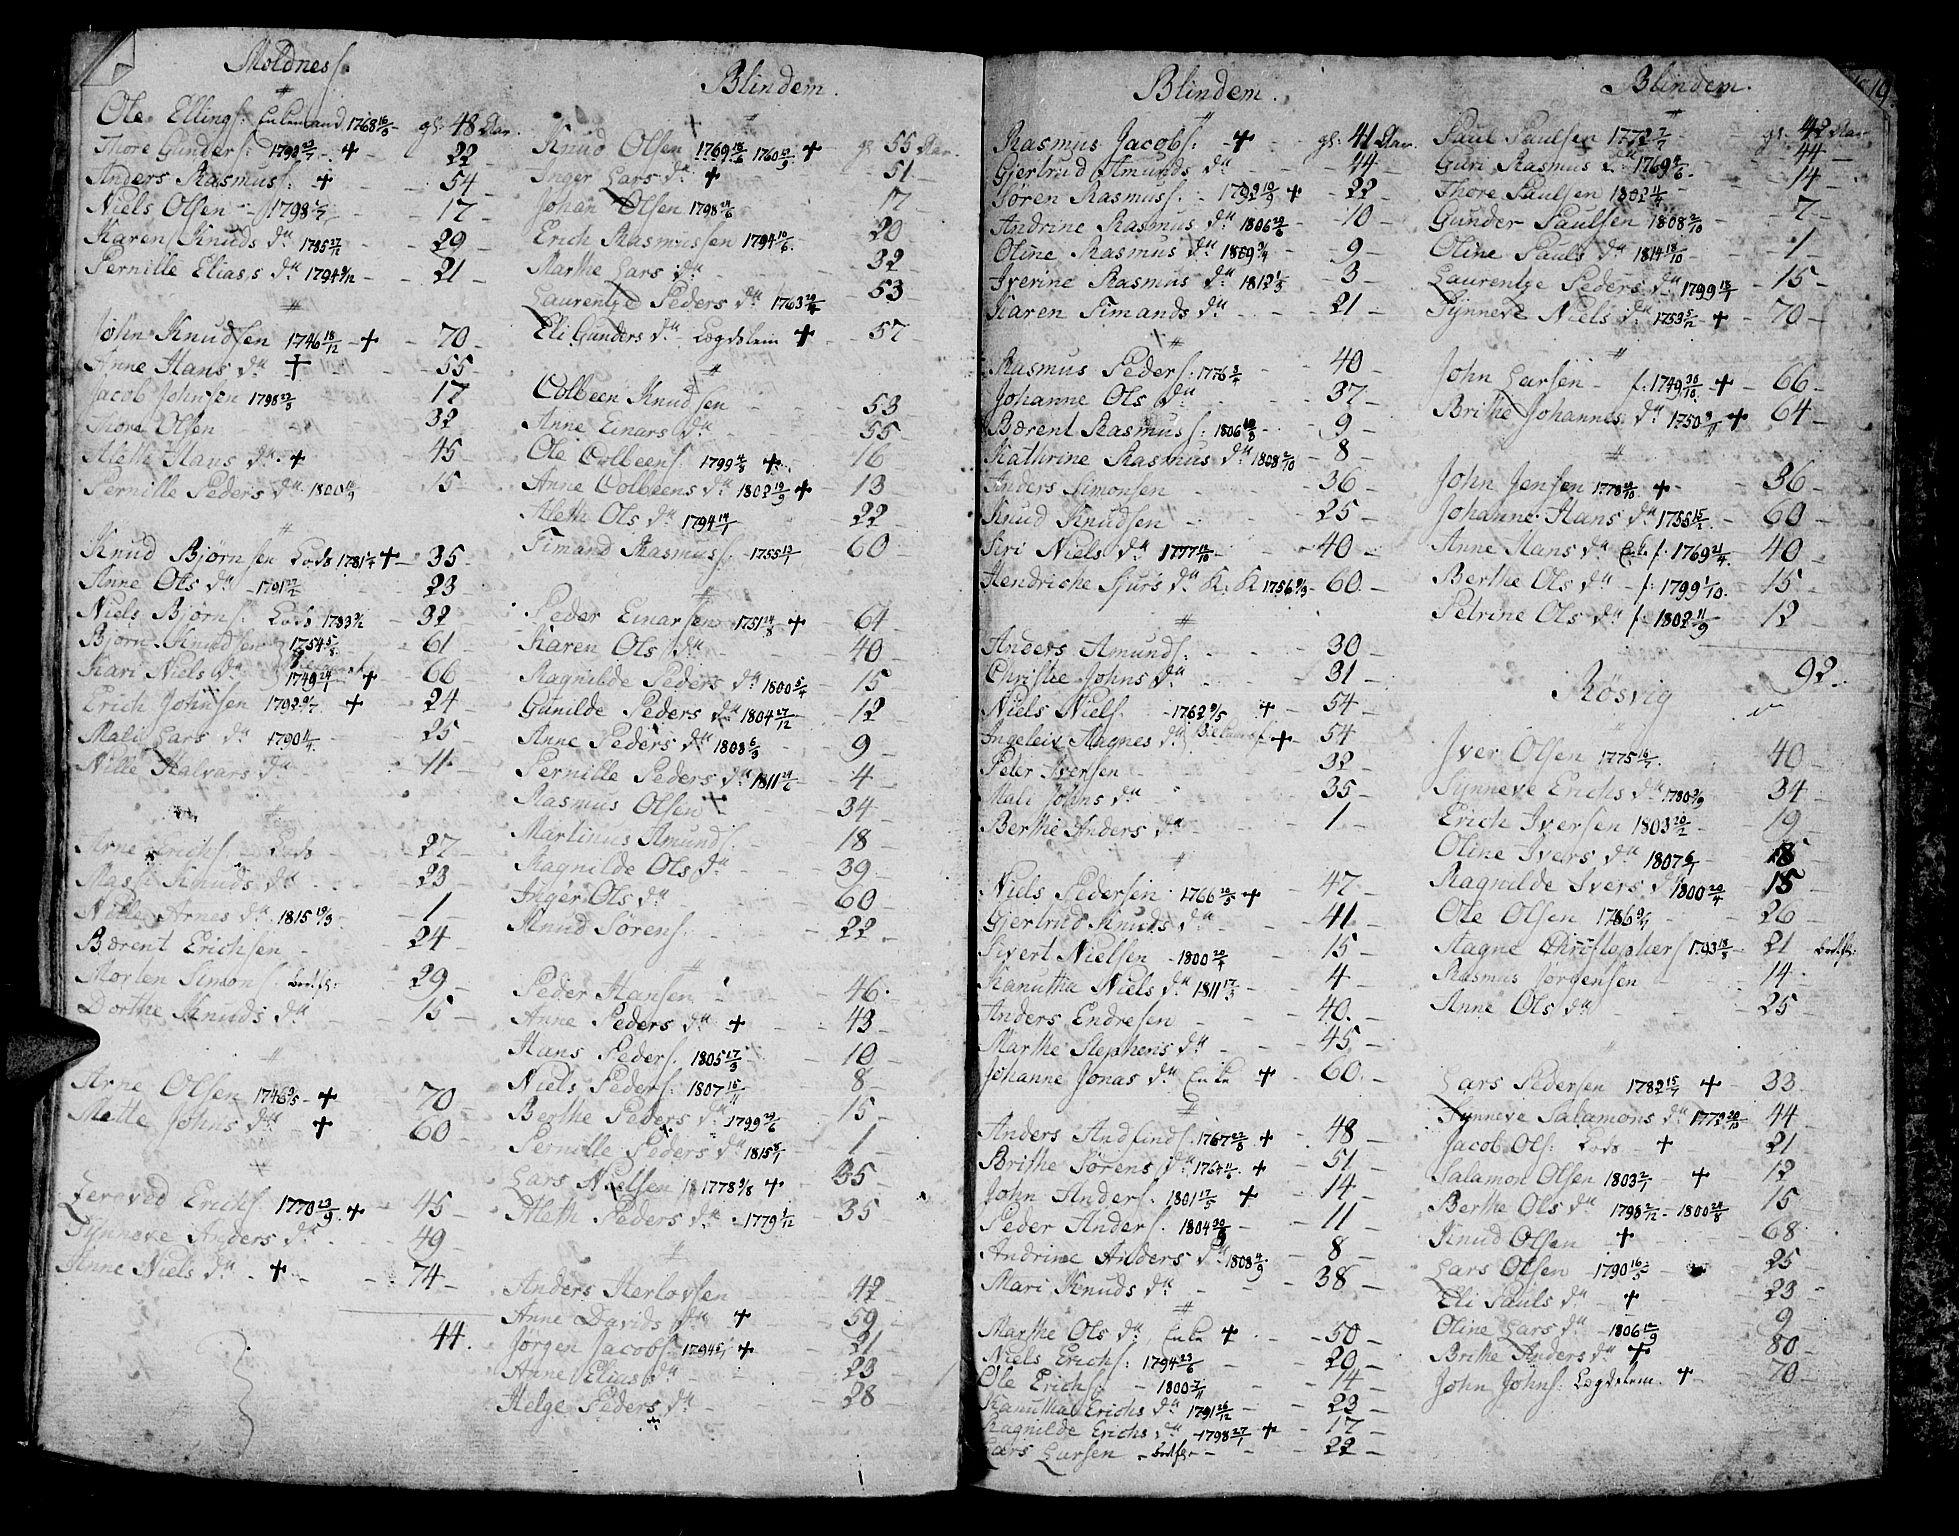 Moldness.
Ole Ellings: Enkemand 1768 16/3 - gl: 48 Aar.
Thore Gunders: 1792 23/7 - + - 22 -
Anders Rasmuss: + - 54 -
Niels Olsen - 1798 - 17 -
Karen Knuds dr 1785 27/12 - 29 -
Pernille Elias,s dr 1794 9/12 - 21 -
#
John Knudsen 1746 18/12 - + - 70 -
Anne Hans dr + - 55 -
Jacob Johnsen 1798 22/3 17 -
Thore Olsen 32
Aleth Hans dr + 45 -
Pernille Peders dr 1800 15 -
#
Knud Bjørnsen Lods 1781 + - 35 -
Anne Ols dr - 1791 - 23 -
Niels Bjørns: Lods 1783 - 32 -
Bjørn Knudsen 1754 5/8 - 61 -
Kari Niels dr 1749 24/1 + - 66 -
Erich Johnsen 1792 + - 24 -
Mali Lars dr 1790 25 -
Nille Halvars dr 11 -
#
Arne Erichs - Lods - 27 -
Knuds dr - 23 -
Nille Arnes dr 1815 19/3 - 1 -
Bærent Erichsen - 24 -
Morten Simons. 29 -
Dorthe Knuds dr - 15 -
#
Arne Olsen 1746 + - 70 -
Mette Johns dr - + 60 -
#
Zeroved Erichs. 1770 23/9 + - 45 -
Synneve Anders dr - 49 -
Anne Niels dr - + - 74 -
44.
Blindem.
#
Knud Olsen 1769 18/6 1760 + gl 55 Aar.
Inger Lars dr + - 51 -
Johan Olsen 1798 24/6 17 -
Erich Rasmussen 1794 10/6 - 20
Marthe Lars dr - 32
Laurentze Peders dr 1763 - 53 -
Eli Gunders dr - Lægdslem + - 57 -
#
Colbeen Knudsen - 53 -
Anne Einars dr - 55 -
Ole Colbeens. 1799 4/8 + - 16
Anne Colbeens dr 1802 19/9 + 13 -
Aleth Ols dr 1794 14/1 22 -
Timand Rasmuss. - 1755 60 -
#
Peder Einarsen 1751 14/8 + - 64 -
Karen Ols dr - 40 -
Ragnilde Peders dr 1800 5/4 - 15 -
Gunilde Peders dr 1804 27/12 - 12 -
Anne Peders dr 1808 6/3 9 -
Pernille Peders dr 1811 - 4 -
Rasmus Olsen - 34 -
Martinus Amunds. 18 -
Ragnilde Ols dr - 39 -
Inger Ols dr - 60 -
Knud Sørens. - 22 -
#
Peder Hansen - 46.
Anne Peders dr + - 43 -
Hans Peders. 1805 17/3 - 10 -
Niels Peders: 1807 15/11 - 8 -
Berthe Peders dr 1799 29/6 - 15 -
Pernille Peders dr 1815 8/1 - 1 -
Lars Nielsen 1778 9/8 + - 35 -
Aleth Peders dr - 1779 1/12 - 35 -
#
Anders Herlovsen 42 -
Anne Davids dr + - 59 -
Jørgen Jacobs. 1794 + - 21 -
Anne Elias dr - 23 -
Helge Peders dr - 28 -
Blindem.
#
Rasmus Jacobs: + - gl: 41 Aar.
Gjertrud Amunds dr - 44 -
Søren Rasmuss. - 1792 10/9 + - 22 -
Andrine Rasmus dr 1806 - 10 -
Oline Rasmus dr 1809 - 9 -
Iverine Rasmus dr 1812 1/3 3 -
Karen Timands dr - 21 -
#
Rasmus Peders. 1776 3/4 - 40
Johanne Ols dr - 37 -
Bærent Rasmuss. 1806 - 9 -
Kathrine Rasmus dr 1808 2/10 - 8 -
Anders Simonsen - 36 -
Knud Knudsen - 25 -
Siri Niels dr 1777 12/10 - 40 -
Hendriche Sjurs dr K: K 1756 9/3 - 60 -
#
Anders Amunds: - 30 -
Christie Johns dr - 31 -
Niels Niels. - 1762 9/5 + - 54 -
Ingeleiv Aagnes dr + - 54
Peter Iversen - 32 -
Mali Johns dr - 35 -
Berthe Anders dr - 1 -
#
Niels Pedersen 1766 20/5 + - 47 -
Gjertrud Knuds dr - 41 -
Sivert Nielsen - 1800 20/4 15 -
Kanutha Niels dr 1811 17/3 - 4 -
Anders Endresen - 40. -
Marthe Stephens dr - 45 -
Johanne Jonas dr Enke + - 60 -
#
Anders 1767 22/8 + - 48 -
Brithe Sørens dr 1764 + - 51 -
John Anders: 1801 17/5 + - 14 -
Peder Anders. 1804 - 11 -
Andrine Anders dr 1808 4/9 - 8 -
Mari Knuds dr - 38 -
#
Marthe Ols dr Enke + - 50 -
Niels Erichs: 1794 23/6 - 20 -
Ole Erichs. - 1800 7/11 - 14 -
Kanutha Erichs dr 1791 26/12 - 23 -
Ragnilde Erichs dr - 1798 27/1 + - 17 -
Lars Larsen - 22 -
Blindem.
19.
#
Paul Paulsen 1772 7/7 - gl: 42 Aar
Guri Rasmus dr 1769 4/6 - 44 -
Thore Paulsen 1802 11/4 - 14 -
Gunder Paulsen 1808 2/10 - 7 -
Oline Pauls dr 1814 18/10 - 1 -
Laurentze Peders dr 1799 18/1 - 15 -
Synneve Niels dr 1753 5/12 - + - 70 -
#
John Larsen - f. 1749 30/10 + - 66 -
Brithe Johannes dr 1750 9/11 + 64 -
#
John Jensen 1778 + - 36 -
Johanne Hans dr 1755 15/2 - 60 -
Anne Hans dr Enk f. 1769 21/4 - 40 -
Berthe Ols dr - f. 1799 1/10 - 15 -
Petrine Ols dr f. 1802 11/9 - 12 -
92.
Røsvig
Iver Olsen 1775 16/7 40 -
Synneve Erichs dr 1780 9/9 34 -
Erich Iversen 1803 20/2 - 19 -
Oline Ivers dr 1807 6/1 -
Ragnilde Ivers dr 1800 20/4 - 15 -
Ole Olsen 1786 - 26 -
Aagne Christophers 1793 18/8 - 21
Rasmus Jørgensen - 14 -
Anne Ols dr - 25 -
Lars Pedersen 1782 15/7 + - 33 -
Synneve Salamons dr 1772 20/10 44 -
Jacob Ols: Lods - + - 21 -
Salamon Olsen 1803 2/1 - + - 12
Berthe Ols dr 1798 2/12 - 1800 24/8 15 -
Knud Olsen - + - 68
Lars Olsen - 1790 16/5 - 25 -
Eli Pauls dr - + - 23 -
Oline Lars dr - 1806 12/9 - 9 -
Brithe Anders dr + - 80 -
John Johns: Lægdslem + - 70 -